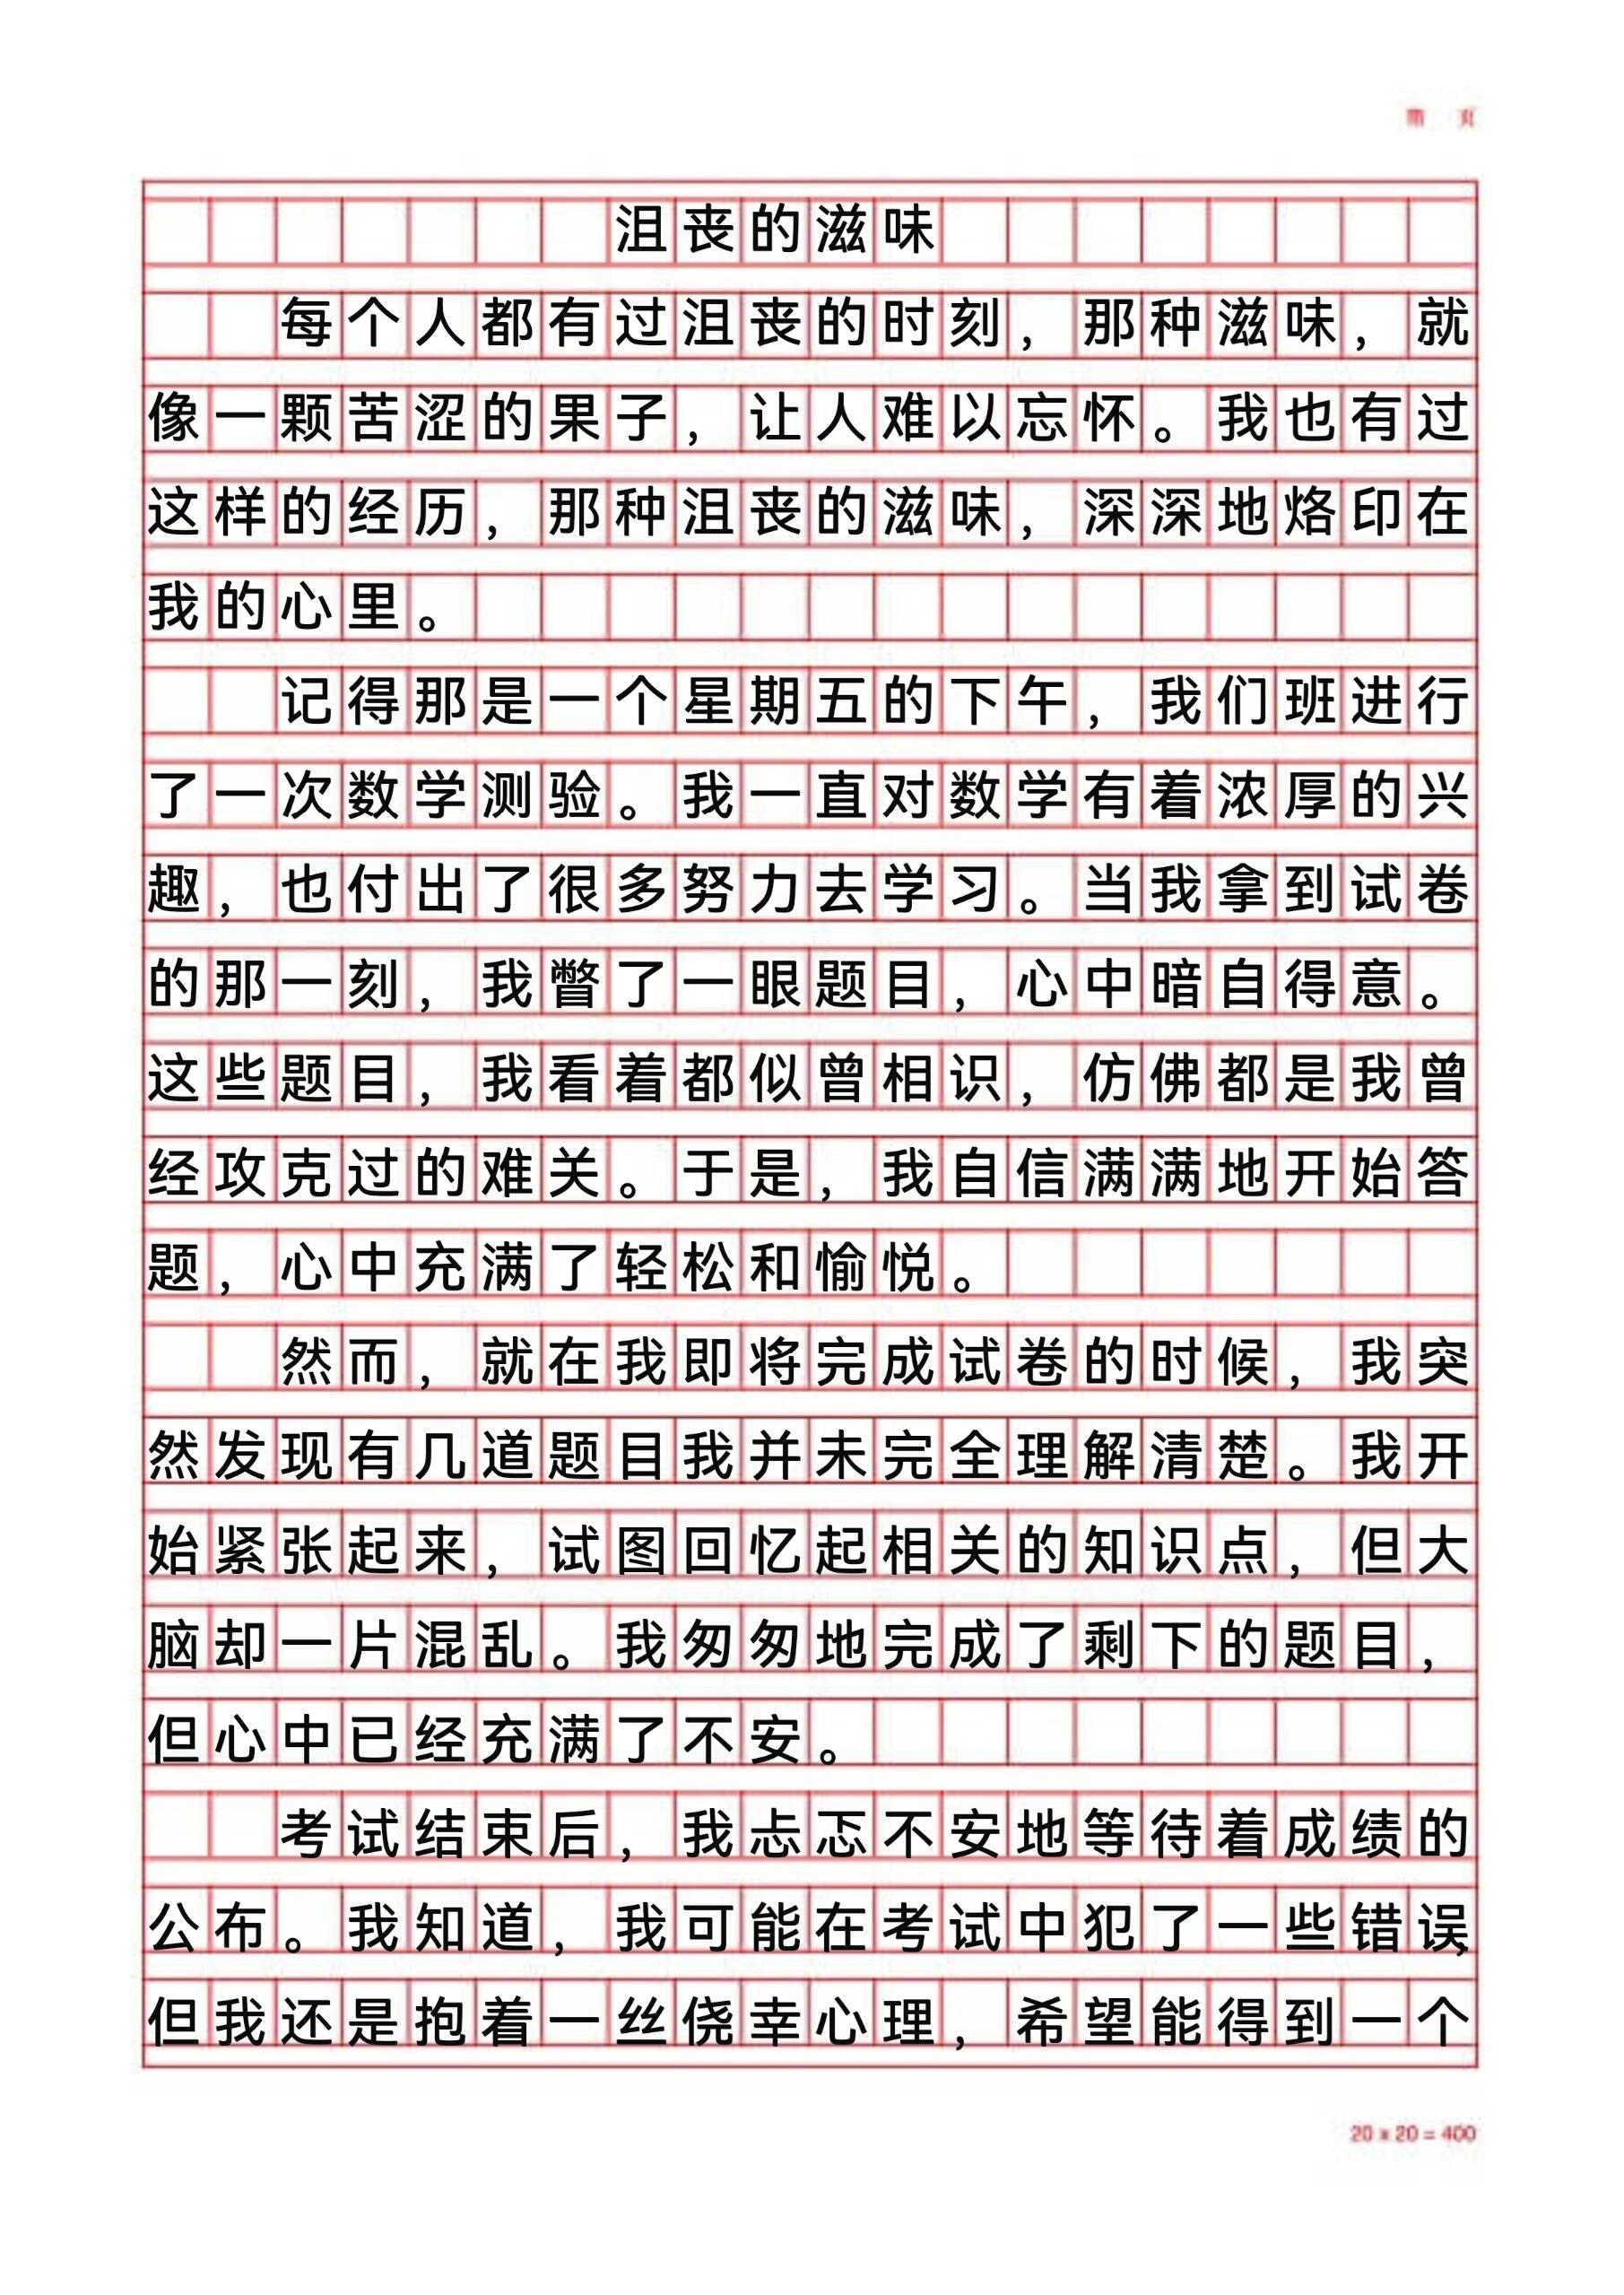 第 页
沮丧的滋味
每个人都有过沮丧的时刻，那种滋味，就
像一颗苦涩的果子，让人难以忘怀。我也有过
这样的经历，那种沮丧的滋味，深深地烙印在
我的心里。
记得那是一个星期五的下午，我们班进行
了一次数学测验。我一直对数学有着浓厚的兴
趣，也付出了很多努力去学习。当我拿到试卷
的那一刻，我瞥了一眼题目，心中暗自得意。
这些题目，我看着都似曾相识，仿佛都是我曾
经攻克过的难关。于是，我自信满满地开始答
题，心中充满了轻松和愉悦。
然而，就在我即将完成试卷的时候，我突
然发现有几道题目我并未完全理解清楚。我开
始紧张起来，试图回忆起相关的知识点，但大
脑却一片混乱。我匆匆地完成了剩下的题目，
但心中已经充满了不安。
考试结束后，我忐忑不安地等待着成绩的
公布。我知道，我可能在考试中犯了一些错误，
但我还是抱着一丝侥幸心理，希望能得到一个
20 x 20 = 400